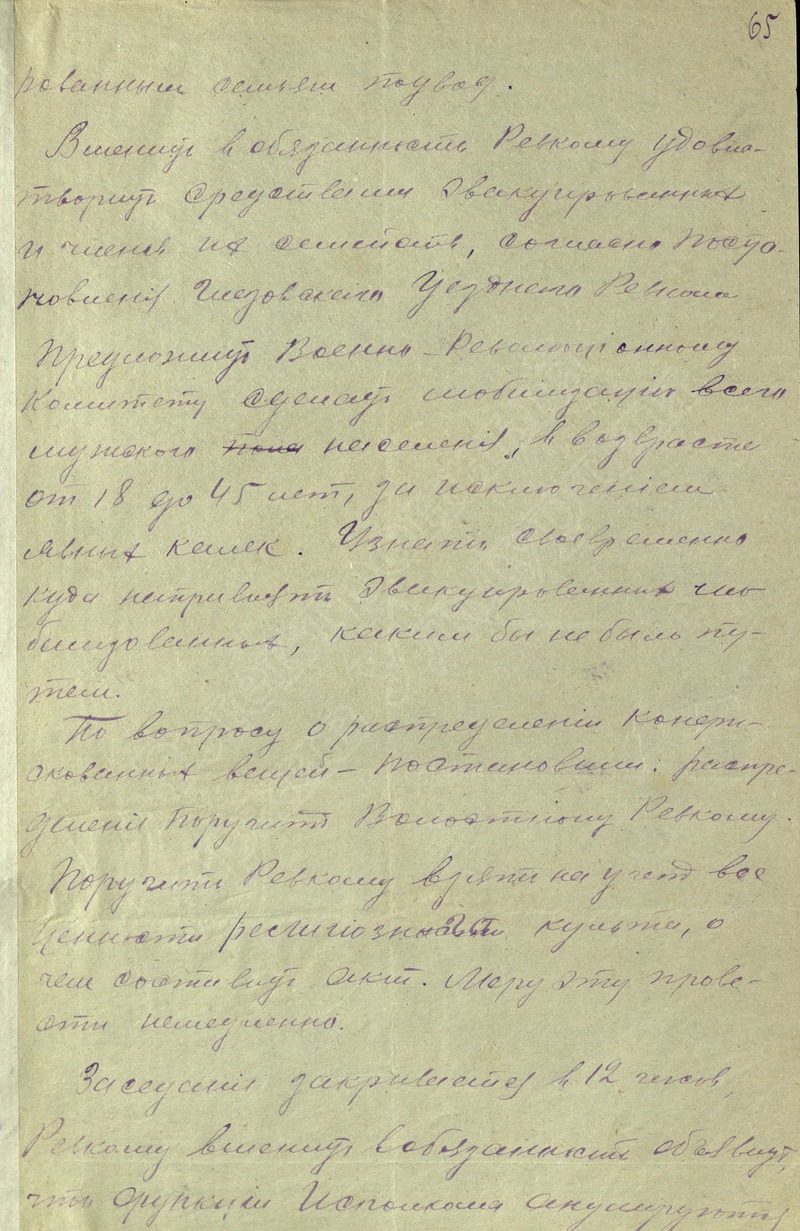 65
рованным семьям подвод.
Вменить в обязанность Ревкому удовле-
творить средствами эвакуированных
и членов их семейств, согласно Поста-
новления Глазовского Уездного Ревкома
Предложить Военно-Революціонному
Комитету сделать мобилизацію всего
мужского пола населенія, в возврасте
от 18 до 45 лет, за исключеніем
явных калек. Узнать своевременно
куда направлять эвакуированных и мо
билизованных, каким бы не было пу-
тем.
По вопросу о распределеніи конфи-
скованных вещей - Постановили: распре-
деленіе Поручить Волостному Ревкому.
Поручить Ревкому взять на учет все
ценности религіозного культа, о
чем составить акт. Меру эту прове-
сти немедленно.
Заседаніе закрывается в 12 часов,
Ревкому вменить в обязанность объявить,
что функціи Исполкома анулируются